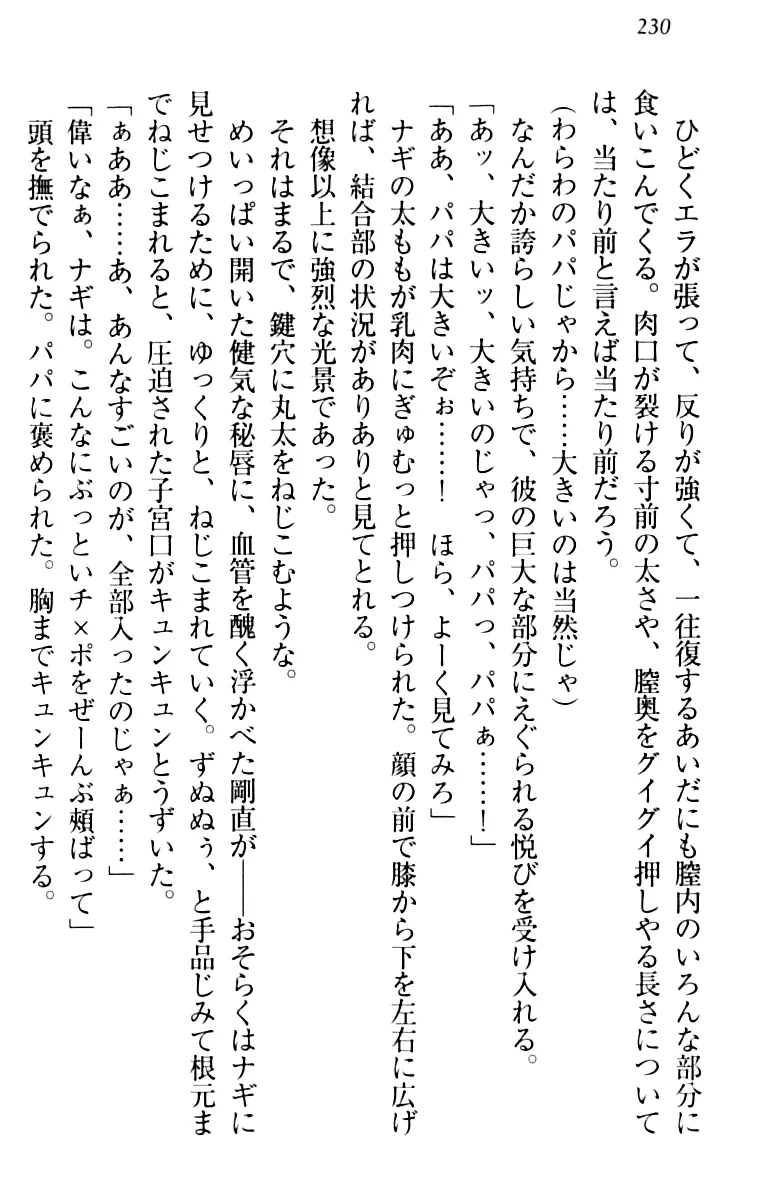 230
ひどくエラが張って、反りが強くて、一往復するあいだにも膣内のいろんな部分に
食いこんでくる。肉口が裂ける寸前の太さや、膣奥をグイグイ押しやる長さについて
は、当たり前と言えば当たり前だろう。
(わらわのパパじゃから……大きいのは当然じゃ)
なんだか誇らしい気持ちで、彼の巨大な部分にえぐられる悦びを受け入れる。
「あッ、大きいッ、大きいのじゃっ、パパっ、パパぁ……！」
「ああ、パパは大きいぞぉ……！　ほら、よーく見てみろ」
ナギの太ももが乳肉にぎゅむっと押しつけられた。顔の前で膝から下を左右に広げ
れば、結合部の状況がありありと見てとれる。
想像以上に強烈な光景であった。
それはまるで、鍵穴に丸太をねじこむような。
めいっぱい開いた健気な秘唇に、血管を醜く浮かべた剛直が──おそらくはナギに
見せつけるために、ゆっくりと、ねじこまれていく。ずぬぬぅ、と手品じみて根元ま
でねじこまれると、圧迫された子宮口がキュンキュンとうずいた。
「ぁああ……あ、あんなすごいのが、全部入ったのじゃぁ……」
「偉いなぁ、ナギは。こんなにぶっといチ×ポをぜーんぶ頬ばって」
頭を撫でられた。パパに褒められた。胸までキュンキュンする。